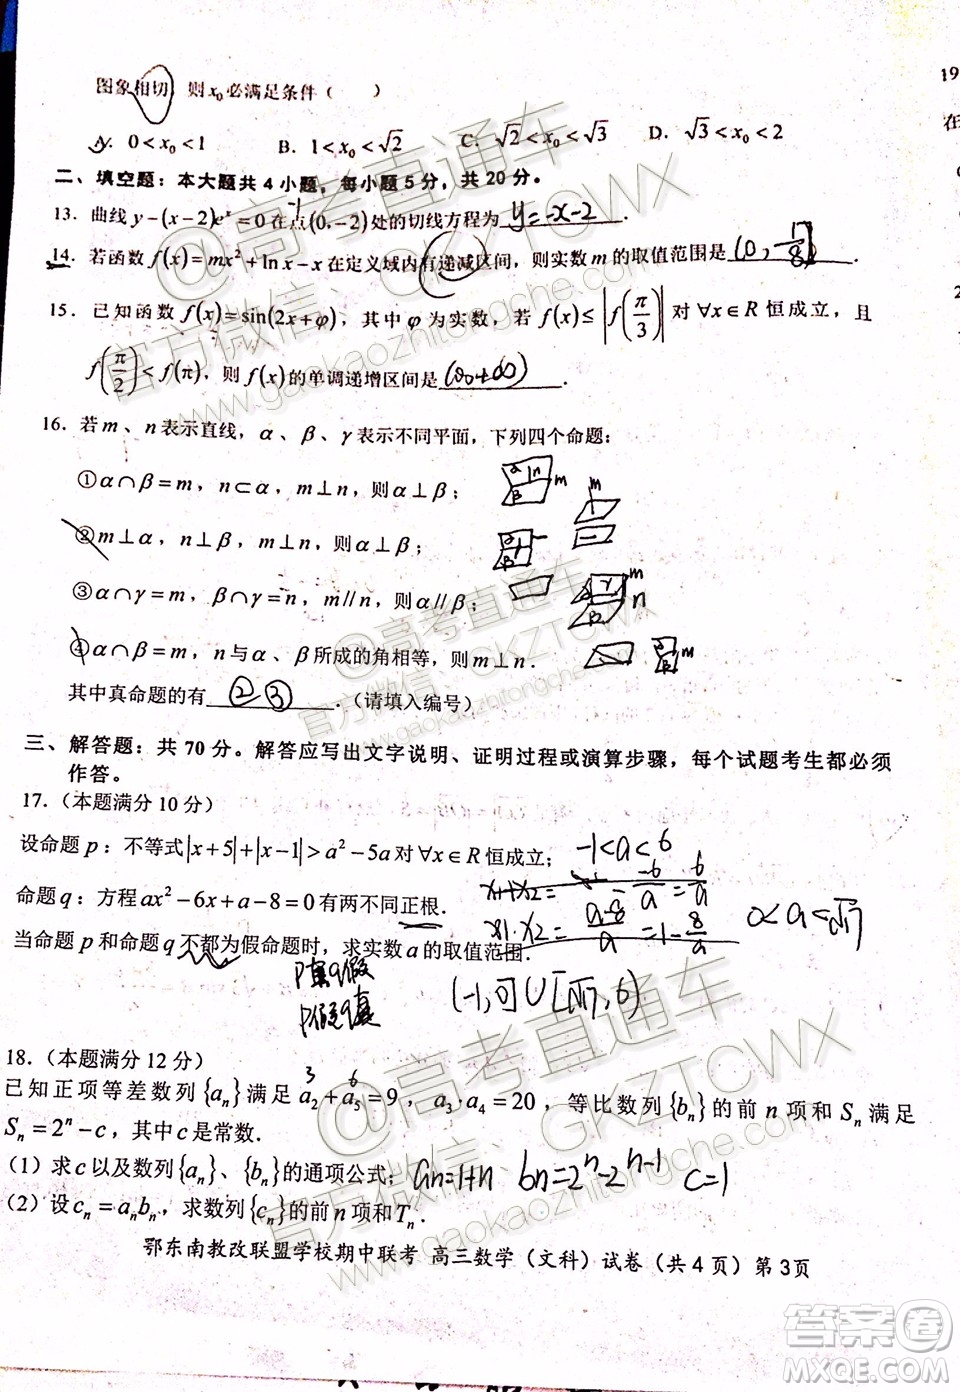 图象相切,则x₀必满足条件(  )
19
在
A. 0<x₀<1  B. 1<x₀<√2  C. √2<x₀<√3  D. √3<x₀<2
二、填空题:本大题共4小题,每小题5分,共20分。
13.曲线y-(x-2)eˣ=0在点(0,-2)处的切线方程为 y=-x-2 .
-1
14.若函数f(x)=mx²+ln x-x在定义域内有递减区间,则实数m的取值范围是
15.已知函数f(x)=sin(2x+φ),其中φ为实数,若f(x)≤|f(π/3)|对∀x∈R恒成立,且
f(π/2)<f(π),则f(x)的单调递增区间是
16.若m、n表示直线,α、β、γ表示不同平面,下列四个命题:
①α∩β=m,n⊂α,m⊥n,则α⊥β;
②m⊥α,n⊥β,m⊥n,则α⊥β;
③α∩γ=m,β∩γ=n,m//n,则α//β;
④α∩β=m,n与α、β所成的角相等,则m⊥n.
其中真命题的有 ②③ .(请填入编号)
三、解答题:共70分。解答应写出文字说明、证明过程或演算步骤,每个试题考生都必须
作答。
17.(本题满分10分)
设命题p:不等式|x+5|+|x-1|>a²-5a对∀x∈R恒成立; -1<a<6
命题q:方程ax²-6x+a-8=0有两不同正根.
x1+x2= - -6/a = 6/a
x1·x2= a-8/a =1-8/a
当命题p和命题q不都为假命题时,求实数a的取值范围.
p真q假
p假q真
18.(本题满分12分)
已知正项等差数列{aₙ}满足a₂+a₅=9,a₃·a₄=20,等比数列{bₙ}的前n项和Sₙ满足
3 6
Sₙ=2ⁿ-c,其中c是常数.
(1)求c以及数列{aₙ}、{bₙ}的通项公式; an=1+n bn=2ⁿ-2ⁿ⁻¹ c=1
(2)设cₙ=aₙbₙ,求数列{cₙ}的前n项和Tₙ.
鄂东南教改联盟学校期中联考 高三数学(文科)试卷(共4页)第3页
@高考直通车
官方微信:GKZTCWX
www.gaokaozhitongche.com
@高考直通车
官方微信:GKZTCWX
www.gaokaozhitongche.com
@高考直通车
官方微信:GKZTCWX
www.gaokaozhitongche.com
答案圈
MXQE.COM